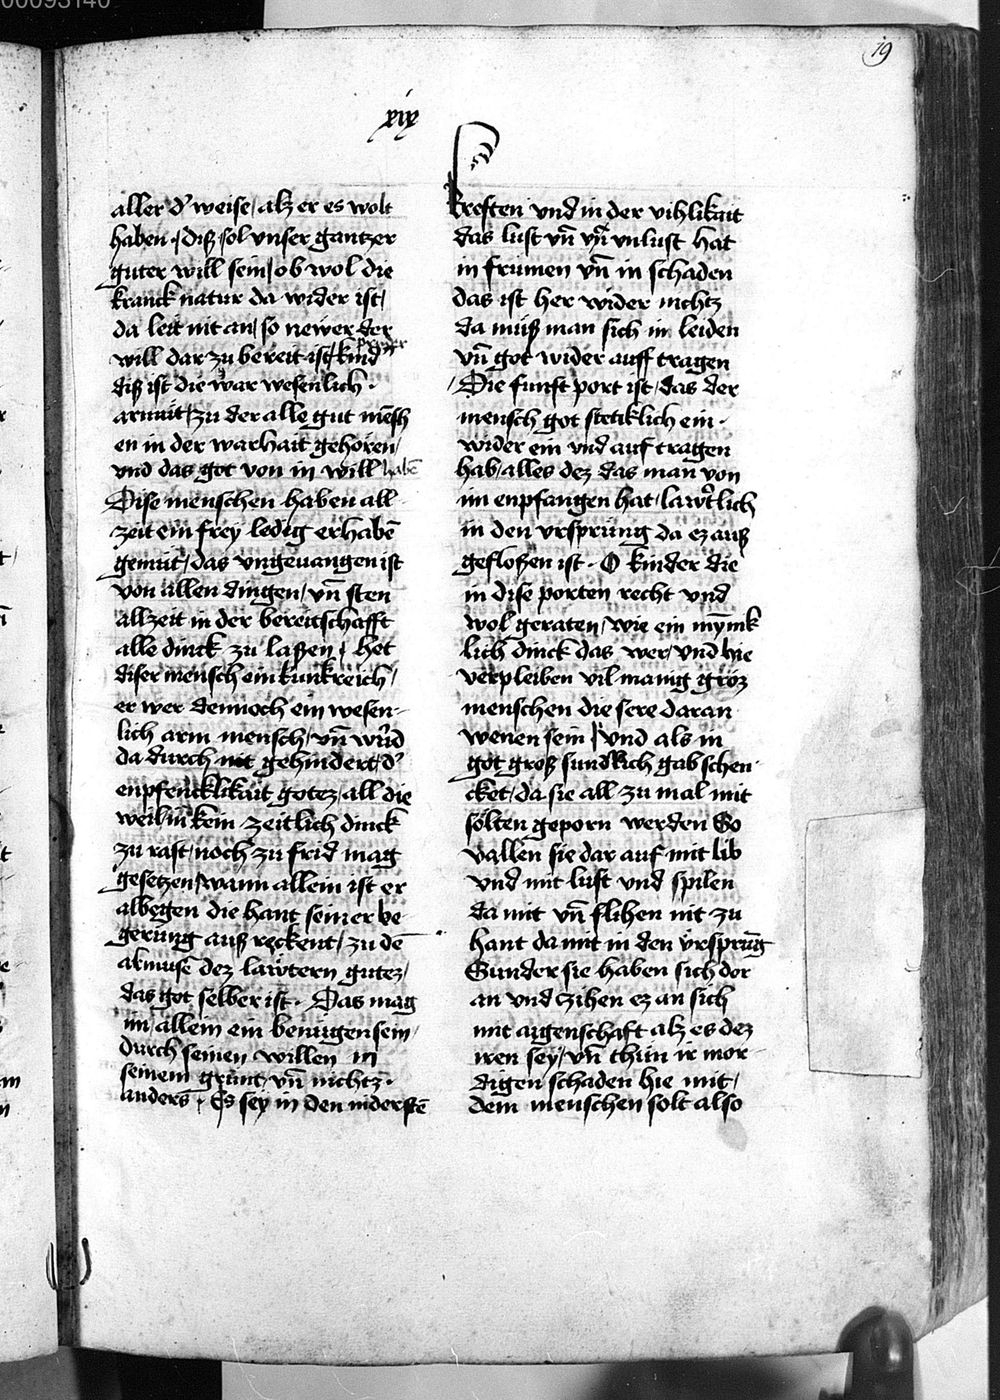 00093140
19
xix
aller d' weise / alz er es wolt
haben / diß sol vnser gantzer
guter will sein / ob wol die
kranck natur da wider ist /
da leit nit an / so newer der
will dar zu bereit ist / kind
diß ist die war wesenlich
armut / zu der alle gut mēsch
en in der warhait gehören /
vnd das got von in will habē
Dise menschen haben all
zeit ein frey ledig erhabē
gemüt / das vngeuangen ist
von allen dingen / vn̄ sten
allzeit in der bereitschafft
alle dinck zu laßen / het
diser mensch ein kunkreich /
er wer dennoch ein wesen-
lich arm mensch / vn̄ würd
da durch nit gehindert / d'
enpfencklikait gotez / all die
weil in kein zeitlich dinck
zu rast / noch zu frid mag
gesetzen / wann allein ist er
albegen die hant seiner be-
gerung auß reckent / zu dē
almusē dez lawtern gutez /
das got selber ist . Das mag
im allein ein benügen sein /
durch seinen willen in
seinem grunt / vn̄ nichtz
anders . Es sey in den niderstē
kreften vnd in der vihlikait
das lust vn̄ vnlust hat
in frumen vn̄ in schaden
das ist her wider nichtz
da muß man sich in leiden
vn̄ got wider auff tragen
Die funft port ist / das der
mensch got stetiklich ein
wider ein vnd auf tragen
hab / alles dez das man von
im enpfangen hat / lawt'lich
in den vrsprüng da ez auß
gefloßen ist . O kinder die
in dise porten recht vnd
wol geraten / wie ein mynnk
lich dinck das wer / vnd hie
verpleiben vil manig gröz
menschen die sere daran
wenen sein / vnd als in
got groß sundlich gab schen-
cket / da sie all zu mal mit
sölten geporn werden So
vallen sie dar auf mit lib
vnd mit lust vnd spilen
da mit vn̄ flihen nit zu
hant da mit in den vrsprüng
Sunder sie haben sich dor
an vnd zihen ez an sich
mit aigenschaft alz es dez
iren sey / vn̄ thün ir mor
digen schaden hie mit /
dem menschen solt also